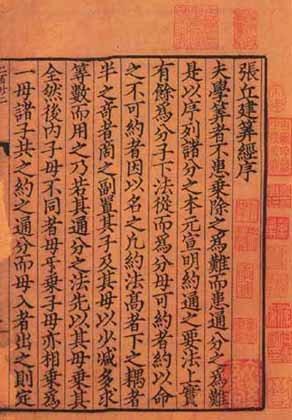 張丘建筭經序
夫學筭者不患乗除之為難而患通分之為難
是以序列諸分之本元宣明約通之要法上實
有餘為分子下法從而為分母可約者約以命
之不可約者因以名之凡約法髙者下之耦者
半之竒者商之副置其子及其母以少減多求
等數而用之乃若其通分之法先以其母乗其
全然後内子母不同者母乗子母亦相乗為
一母諸子共之約之通分而母入者出之則定